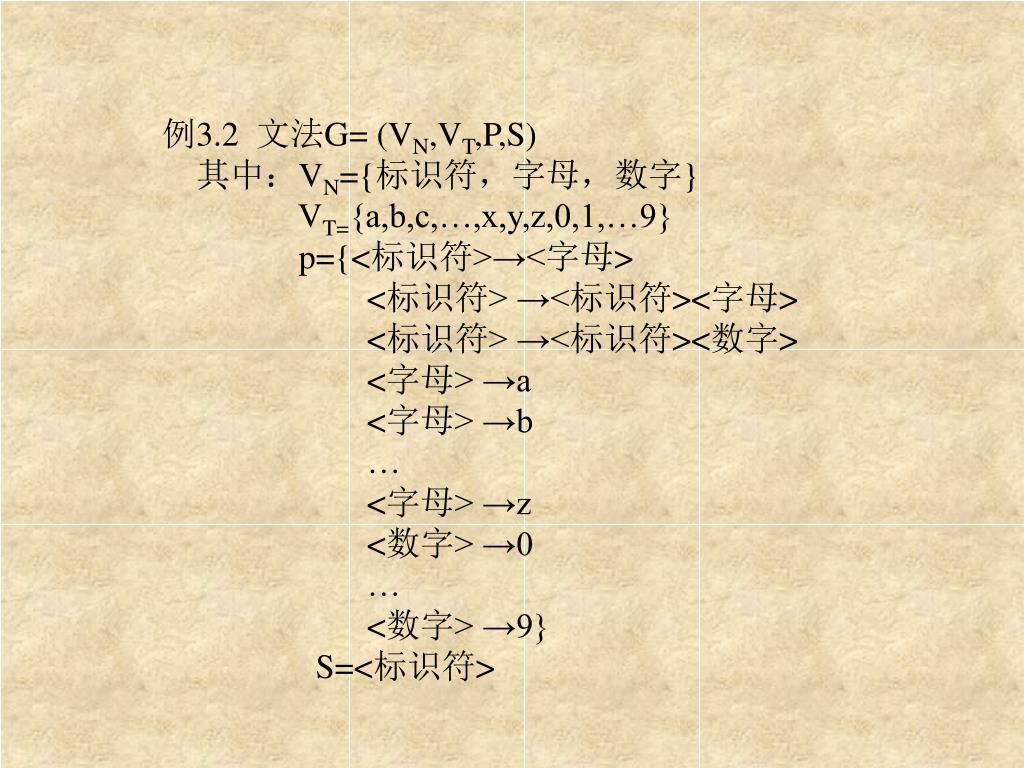 例3.2 文法G= (VN,VT,P,S)
其中：VN={标识符，字母，数字}
VT={a,b,c,…,x,y,z,0,1,…9}
p={<标识符>→<字母>
<标识符> →<标识符><字母>
<标识符> →<标识符><数字>
<字母> →a
<字母> →b
…
<字母> →z
<数字> →0
…
<数字> →9}
S=<标识符>